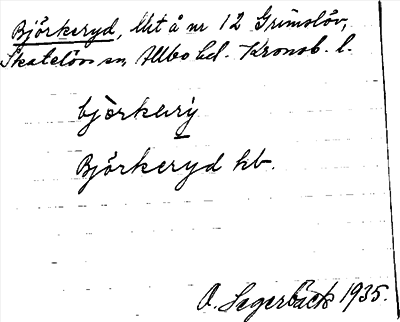 Björkeryd, llit å nr 12 Grimslöv,
Skatelövs sn Allbo hd. Kronob. l.
björkarý
Björkeryd hb.
O. Segerbäck 1935.